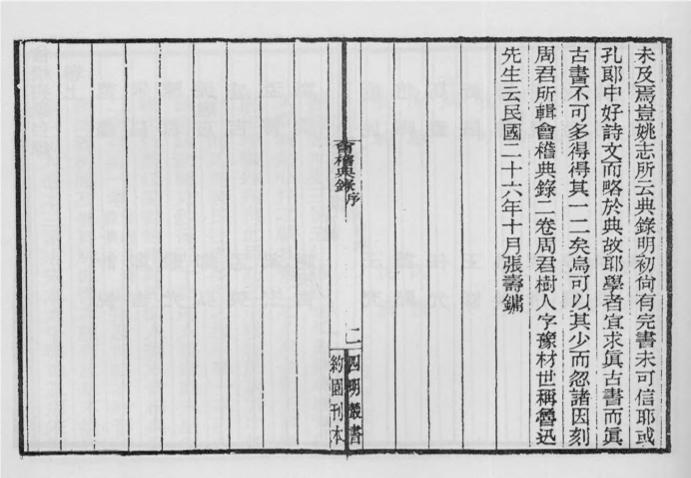 未及焉豈姚志所云典錄明初尙有完書未可信耶或
孔耶中好詩文而略於典故耶學者宜求眞古書而眞
古書不可多得得其一二矣烏可以其少而忽諸因刻
周君所輯會稽典錄二卷周君樹人字豫材世稱魯迅
先生云民國二十六年十月張壽鏞
會稽典錄序
二
四明叢書
約園刊本